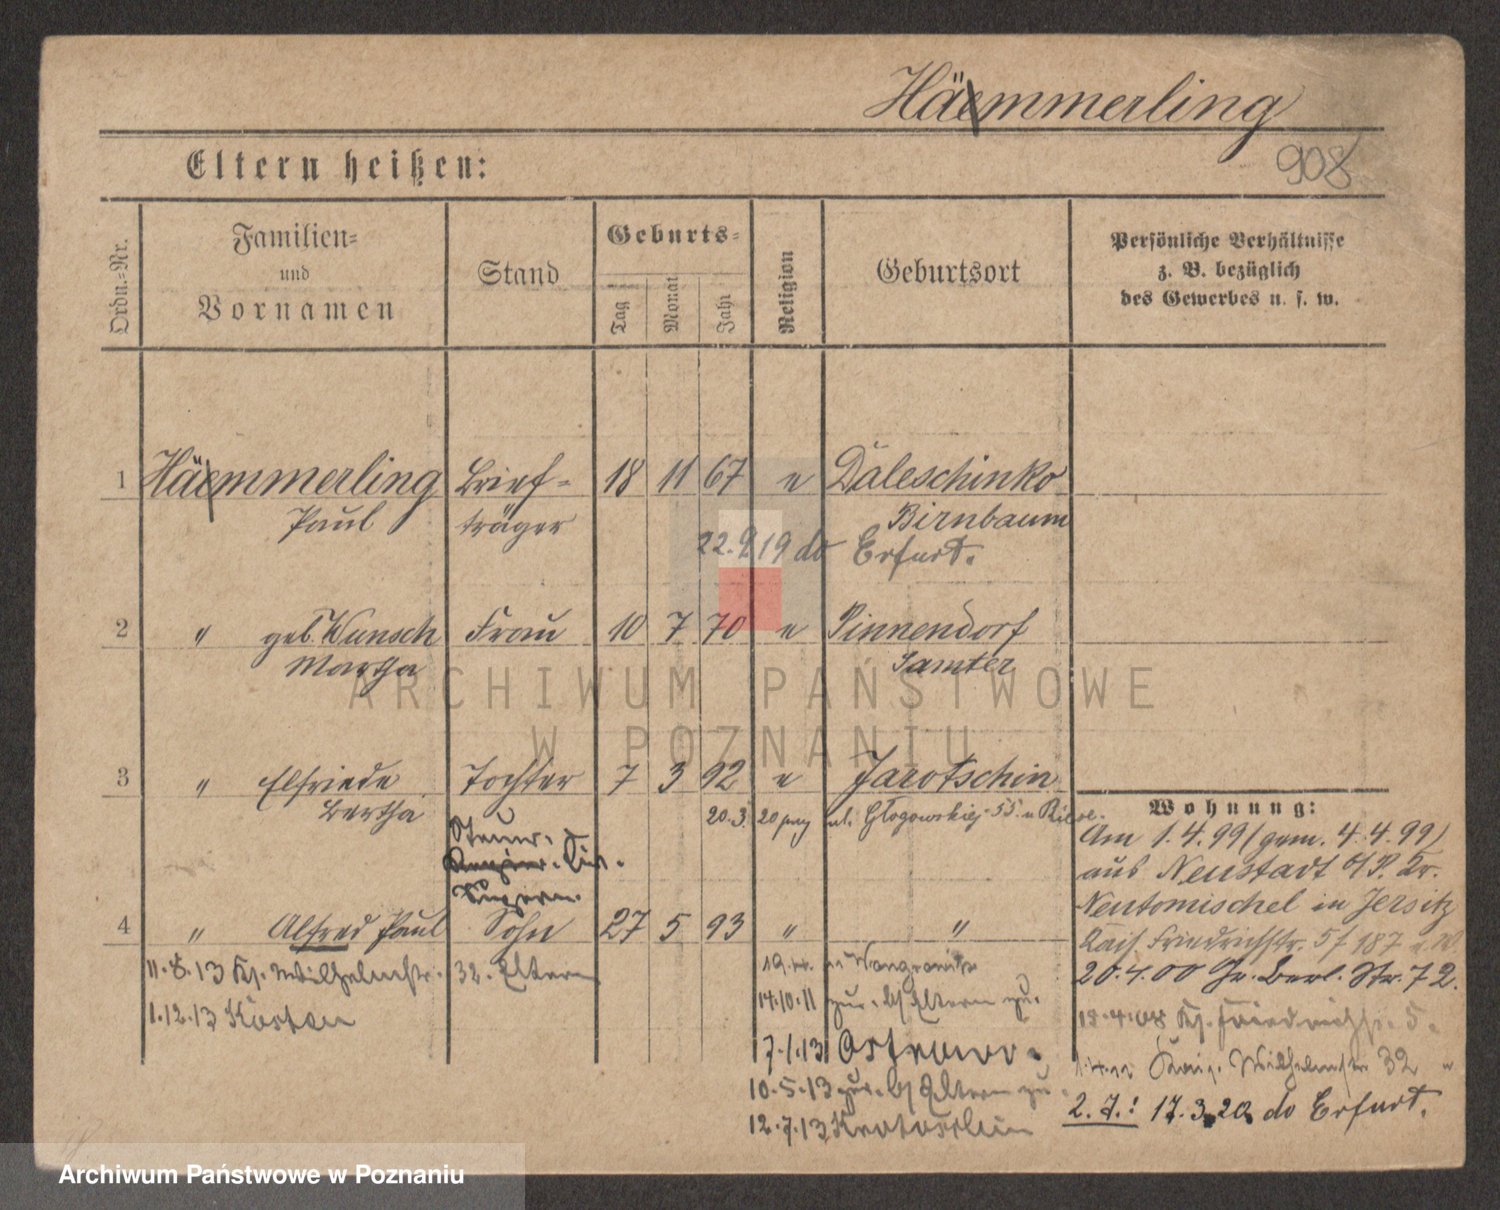 Häemmerling
908
Eltern heißen:
Ordn.-Nr.
Familien-
und
Vornamen
Stand
Geburts-
Tag
Monat
Jahr
Religion
Geburtsort
Persönliche Verhältnisse
z. B. bezüglich
des Gewerbes u. s. w.
1 Häemmerling Brief- 18 11 67 e Daleschinko
Paul träger Birnbaum
22.9 19 do Erfurt.
2 " geb. Wunsch Frau 10 7 70 e Pinnendorf
Martha Samter
3 " Elfriede Tochter 7 3 92 e Jarotschin
Bertha 20.3. 20 ul. Głogowskiej 55
Wohnung:
Am 1.4.99 (gem. 4.4.99)
aus Neustadt Kr.
Neutomischel in Jersitz
Kais. Friedrichstr. 5
20.4.00 Gr. Berl. Str. 72.
Kg. Friedrichstr. 5.
Wilhelmstr. 32
2. 7.: 17.3.20 do Erfurt.
Steuer-
4 " Alfred Paul Sohn 27 5 93 " "
11.8.13 Kg. Wilhelmstr. 32. Eltern
1.12.13 Kosten
Wongrowitz
14.10.11 zur. v/ Eltern zu.
7.1.13 Ostrowo.
10.5.13 zur. v/ Eltern zu
12.7.13 Krotoschin
ARCHIWUM PAŃSTWOWE
W POZNANIU
Archiwum Państwowe w Poznaniu